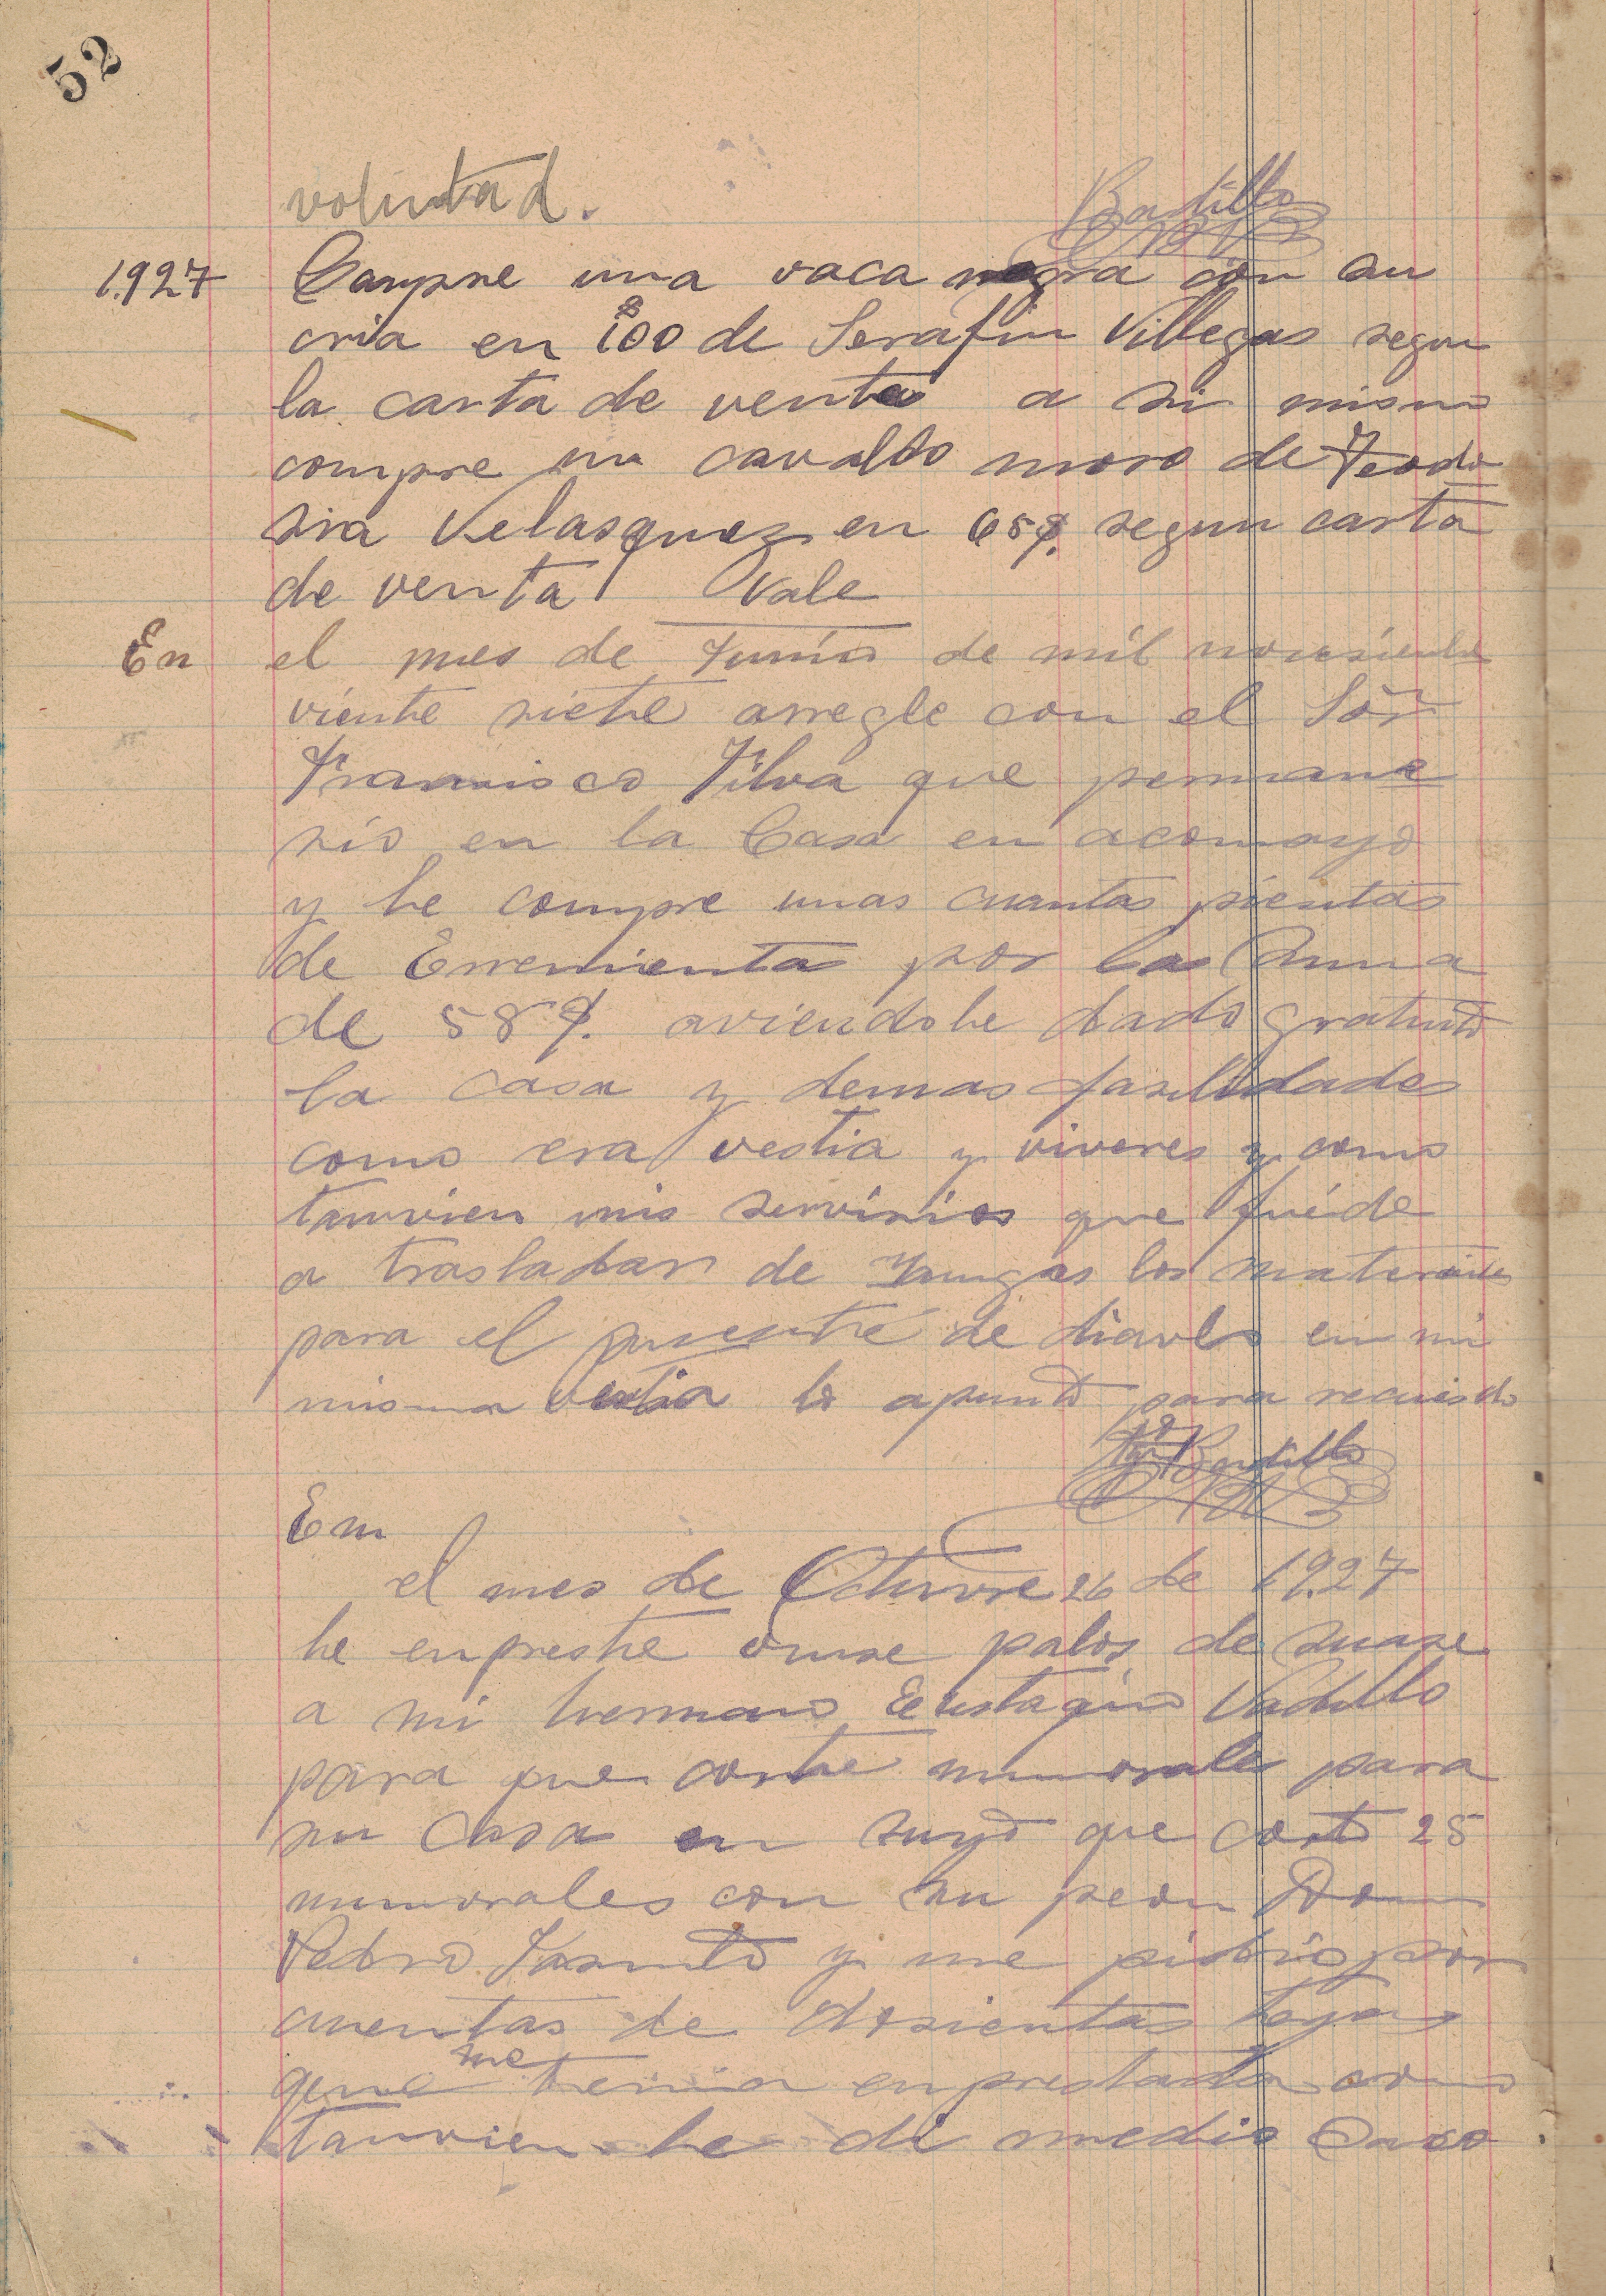 52
voluntad.
Bustillo
1927 Compre una vaca negra con su
cria en 100 de Serafin Villegas segun
la carta de venta a si mismo
compre un cavallo moro de Teodo
sia Velasquez en 65$. segun carta
de venta vale
En el mes de Junio de mil novesientos
viente siete arregle con el Sör
Francisco Silva que permane
sio en la Casa en acomayo
y le compre unas cuantas pientas
de Erremienta por la suma
de 58$. aviendole dado gratuito
la casa y demas fasilidades
como era vestia y viveres y como
tanvien mis servisios que fué de
a trasladar de Yungas los materiales
para el puente de diavlo en mi
misma vestia lo apunto para recuerdo
Bustillo
En
el mes de Octuvre 26 de 1927
le enpreste onse palos de
a mi hermano Eustaquio Vadillo
para que corte para
su Casa en suyo que corto 25
con su peon Don
Pedro y me pidio por
cuentas de dosientas tejas
que me tenia enprestado como
tanvien le di medio